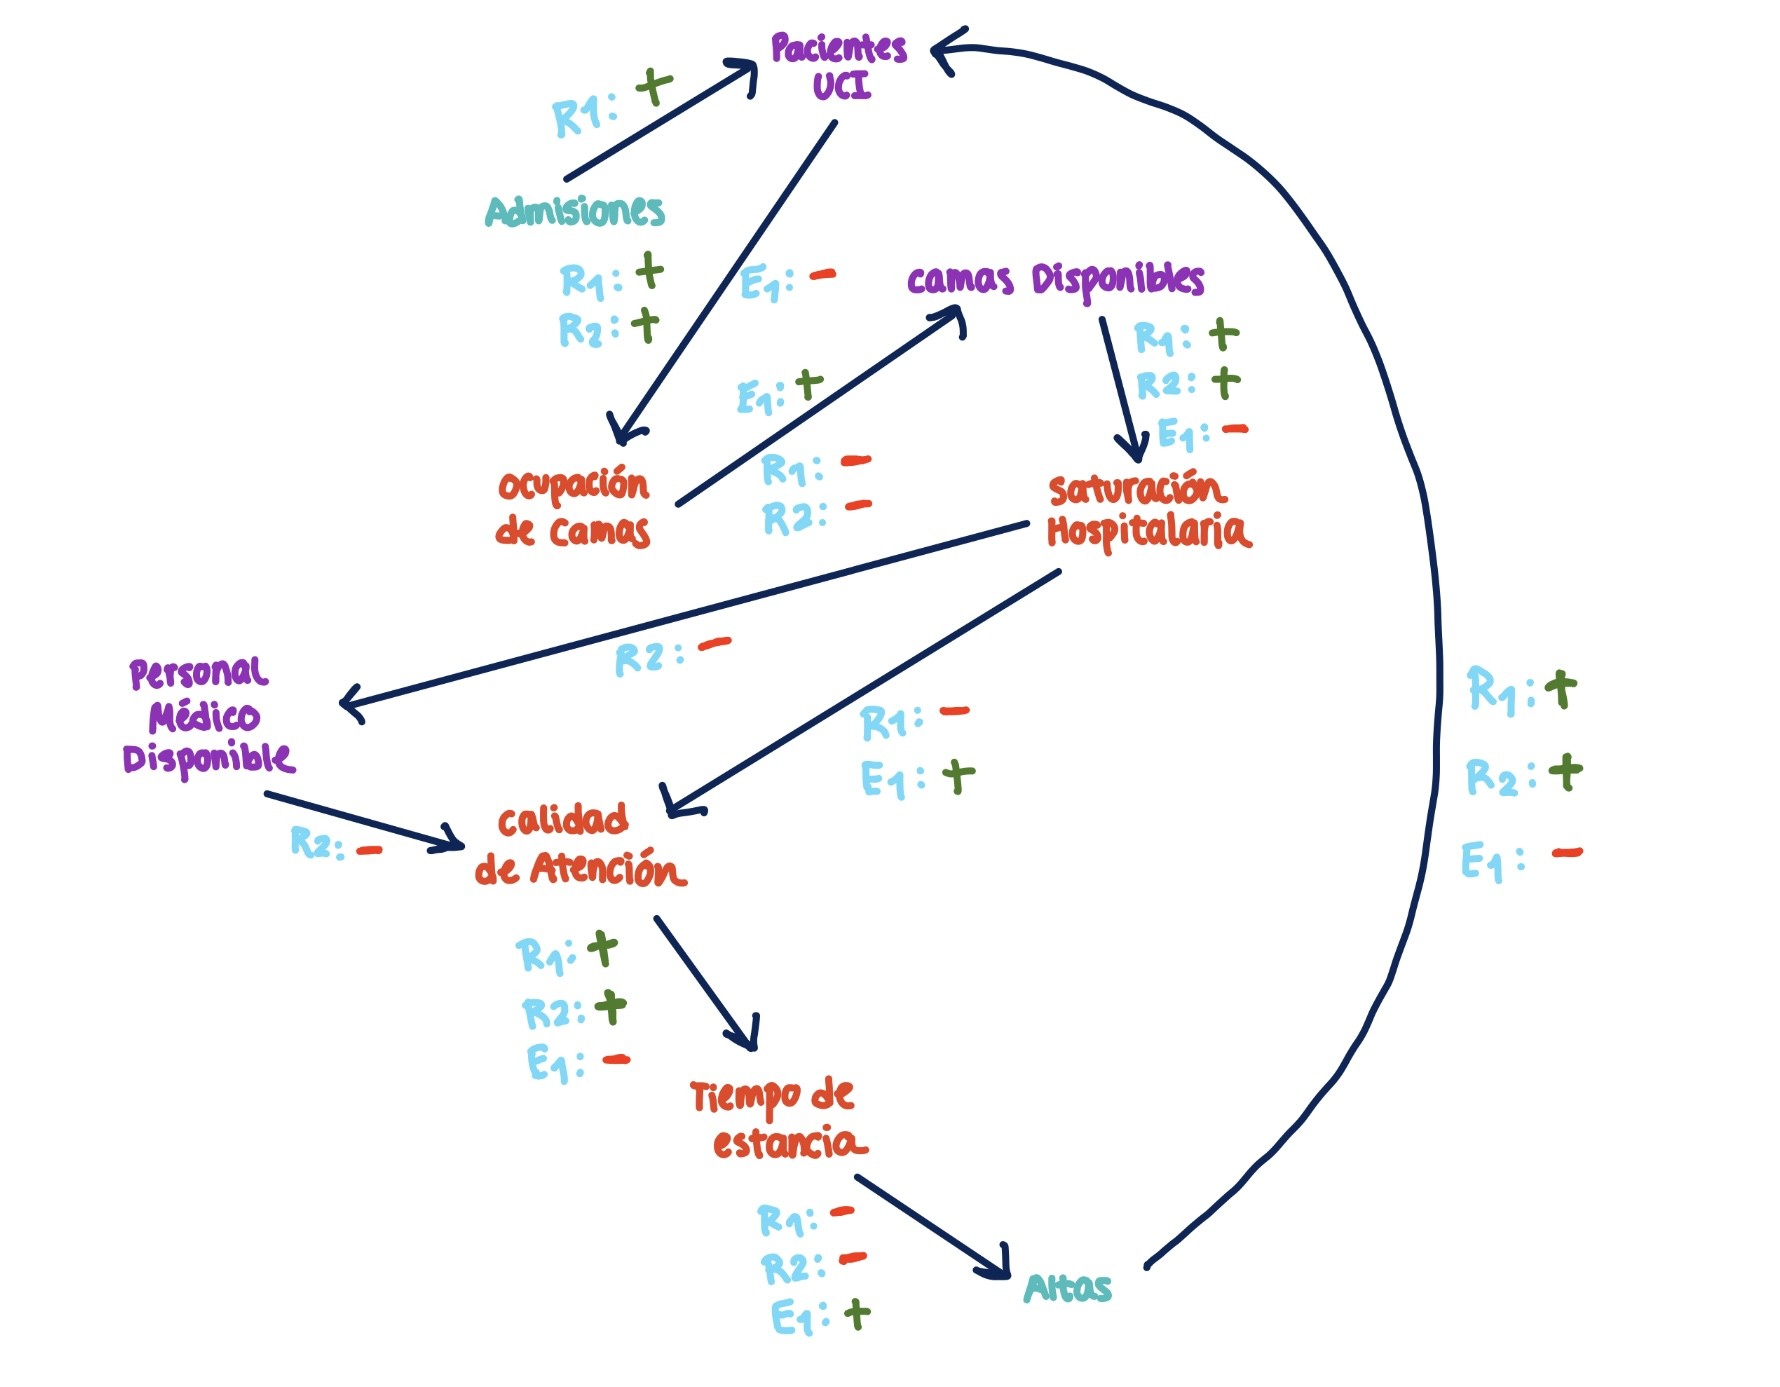 Pacientes
UCI
R1: +
Admisiones
R1: +
R2: +
E1: -
camas Disponibles
R1: +
R2: +
E1: -
E1: +
R1: -
R2: -
ocupación
de camas
saturación
Hospitalaria
R2: -
Personal
Médico
Disponible
R1: -
E1: +
R2: -
calidad
de Atención
R1: +
R2: +
E1: -
R1: +
R2: +
E1: -
Tiempo de
estancia
R1: -
R2: -
E1: +
Altas